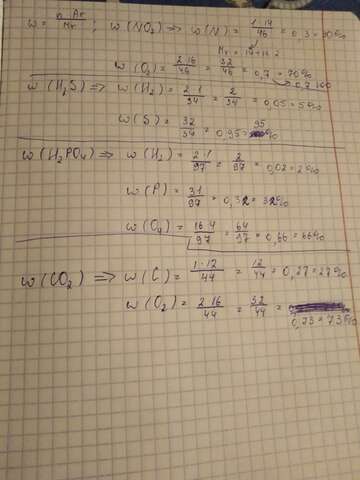 w = n·Ar/Mr ; w(NO₂) ⟹ w(N) = 1·14/46 = 0,3 = 30%
w(O₂) = 2·16/46 = 32/46 = 0,7 = 70%
0,7·100
w(H₂S) ⟹ w(H₂) = 2·1/34 = 2/34 = 0,05 = 5%
w(S) = 32/34 = 0,95 = 95%
w(H₂PO₄) ⟹ w(H₂) = 2·1/97 = 2/97 = 0,02 = 2%
w(P) = 31/97 = 0,32 = 32%
w(O₄) = 16·4/97 = 64/97 = 0,66 = 66%
w(CO₂) ⟹ w(C) = 1·12/44 = 12/44 = 0,27 = 27%
w(O₂) = 2·16/44 = 32/44 =
0,73 = 73%